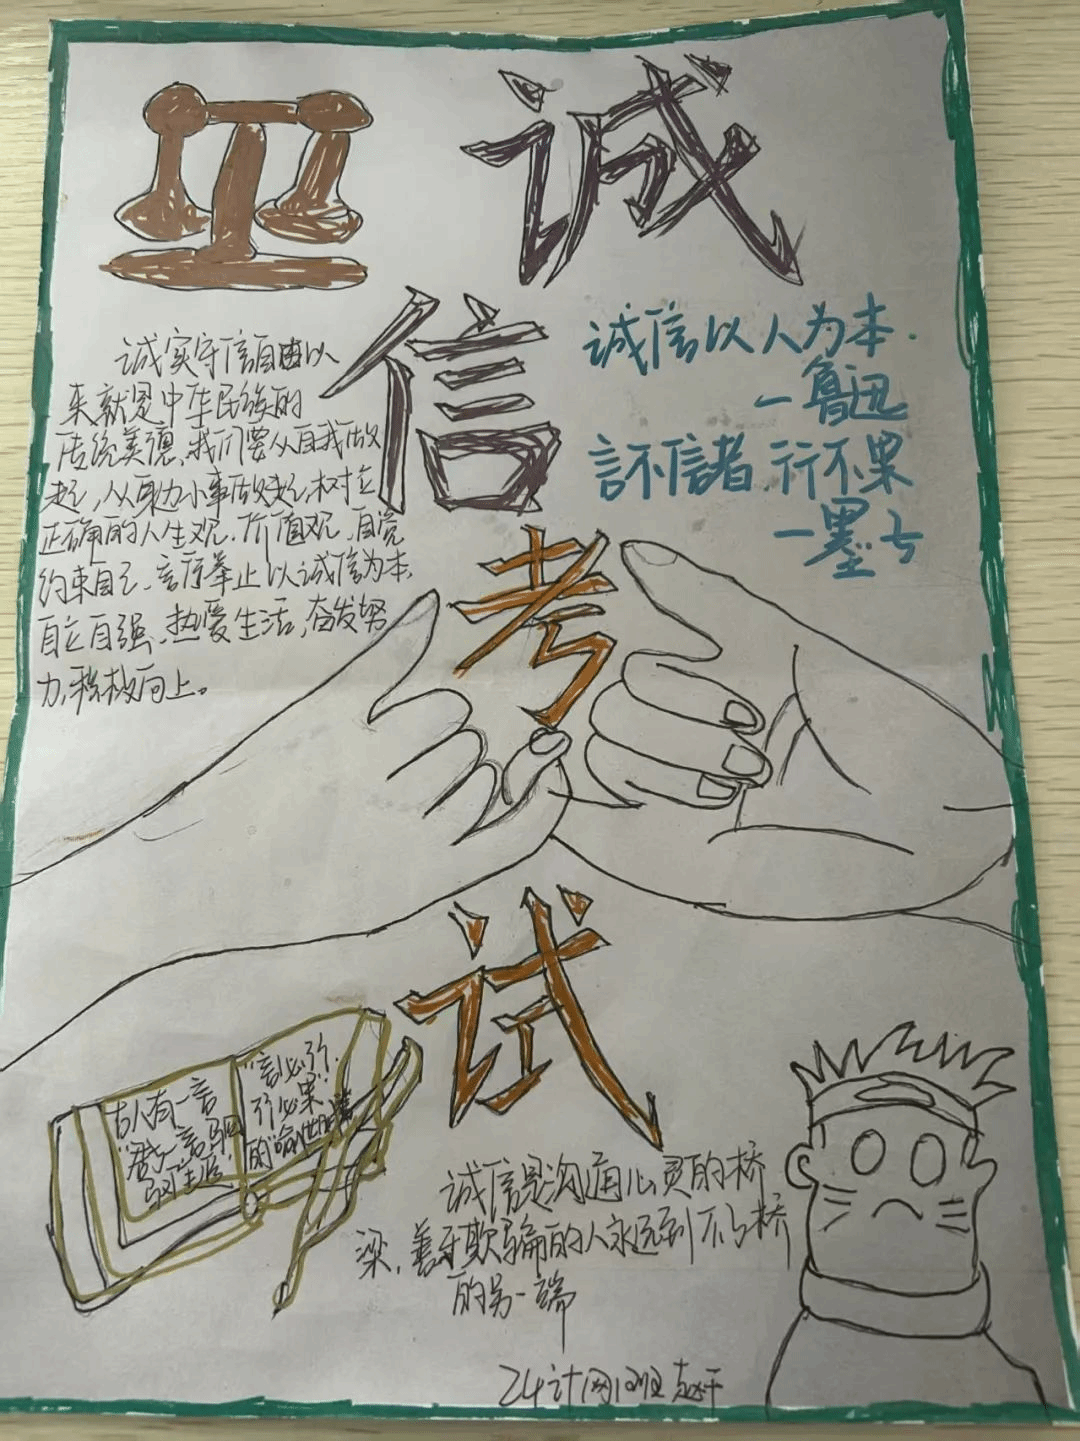 诚
信
考
试
诚信以人为本.
一鲁迅
言不信者 行不果
一墨子
诚实守信自由以
来就是中华民族的
传统美德、我们要从自我做
起,从身边小事做起,树立
正确的人生观、价值观、自觉
约束自己、言行举止以诚信为本、
自立自强、热爱生活,奋发努
力,积极向上。
古人有一言
既一言驷
"言必行,
行必果"
诚信是沟通心灵的桥
梁,善于欺骗的人永远到不了桥
的另一端
24计网1班